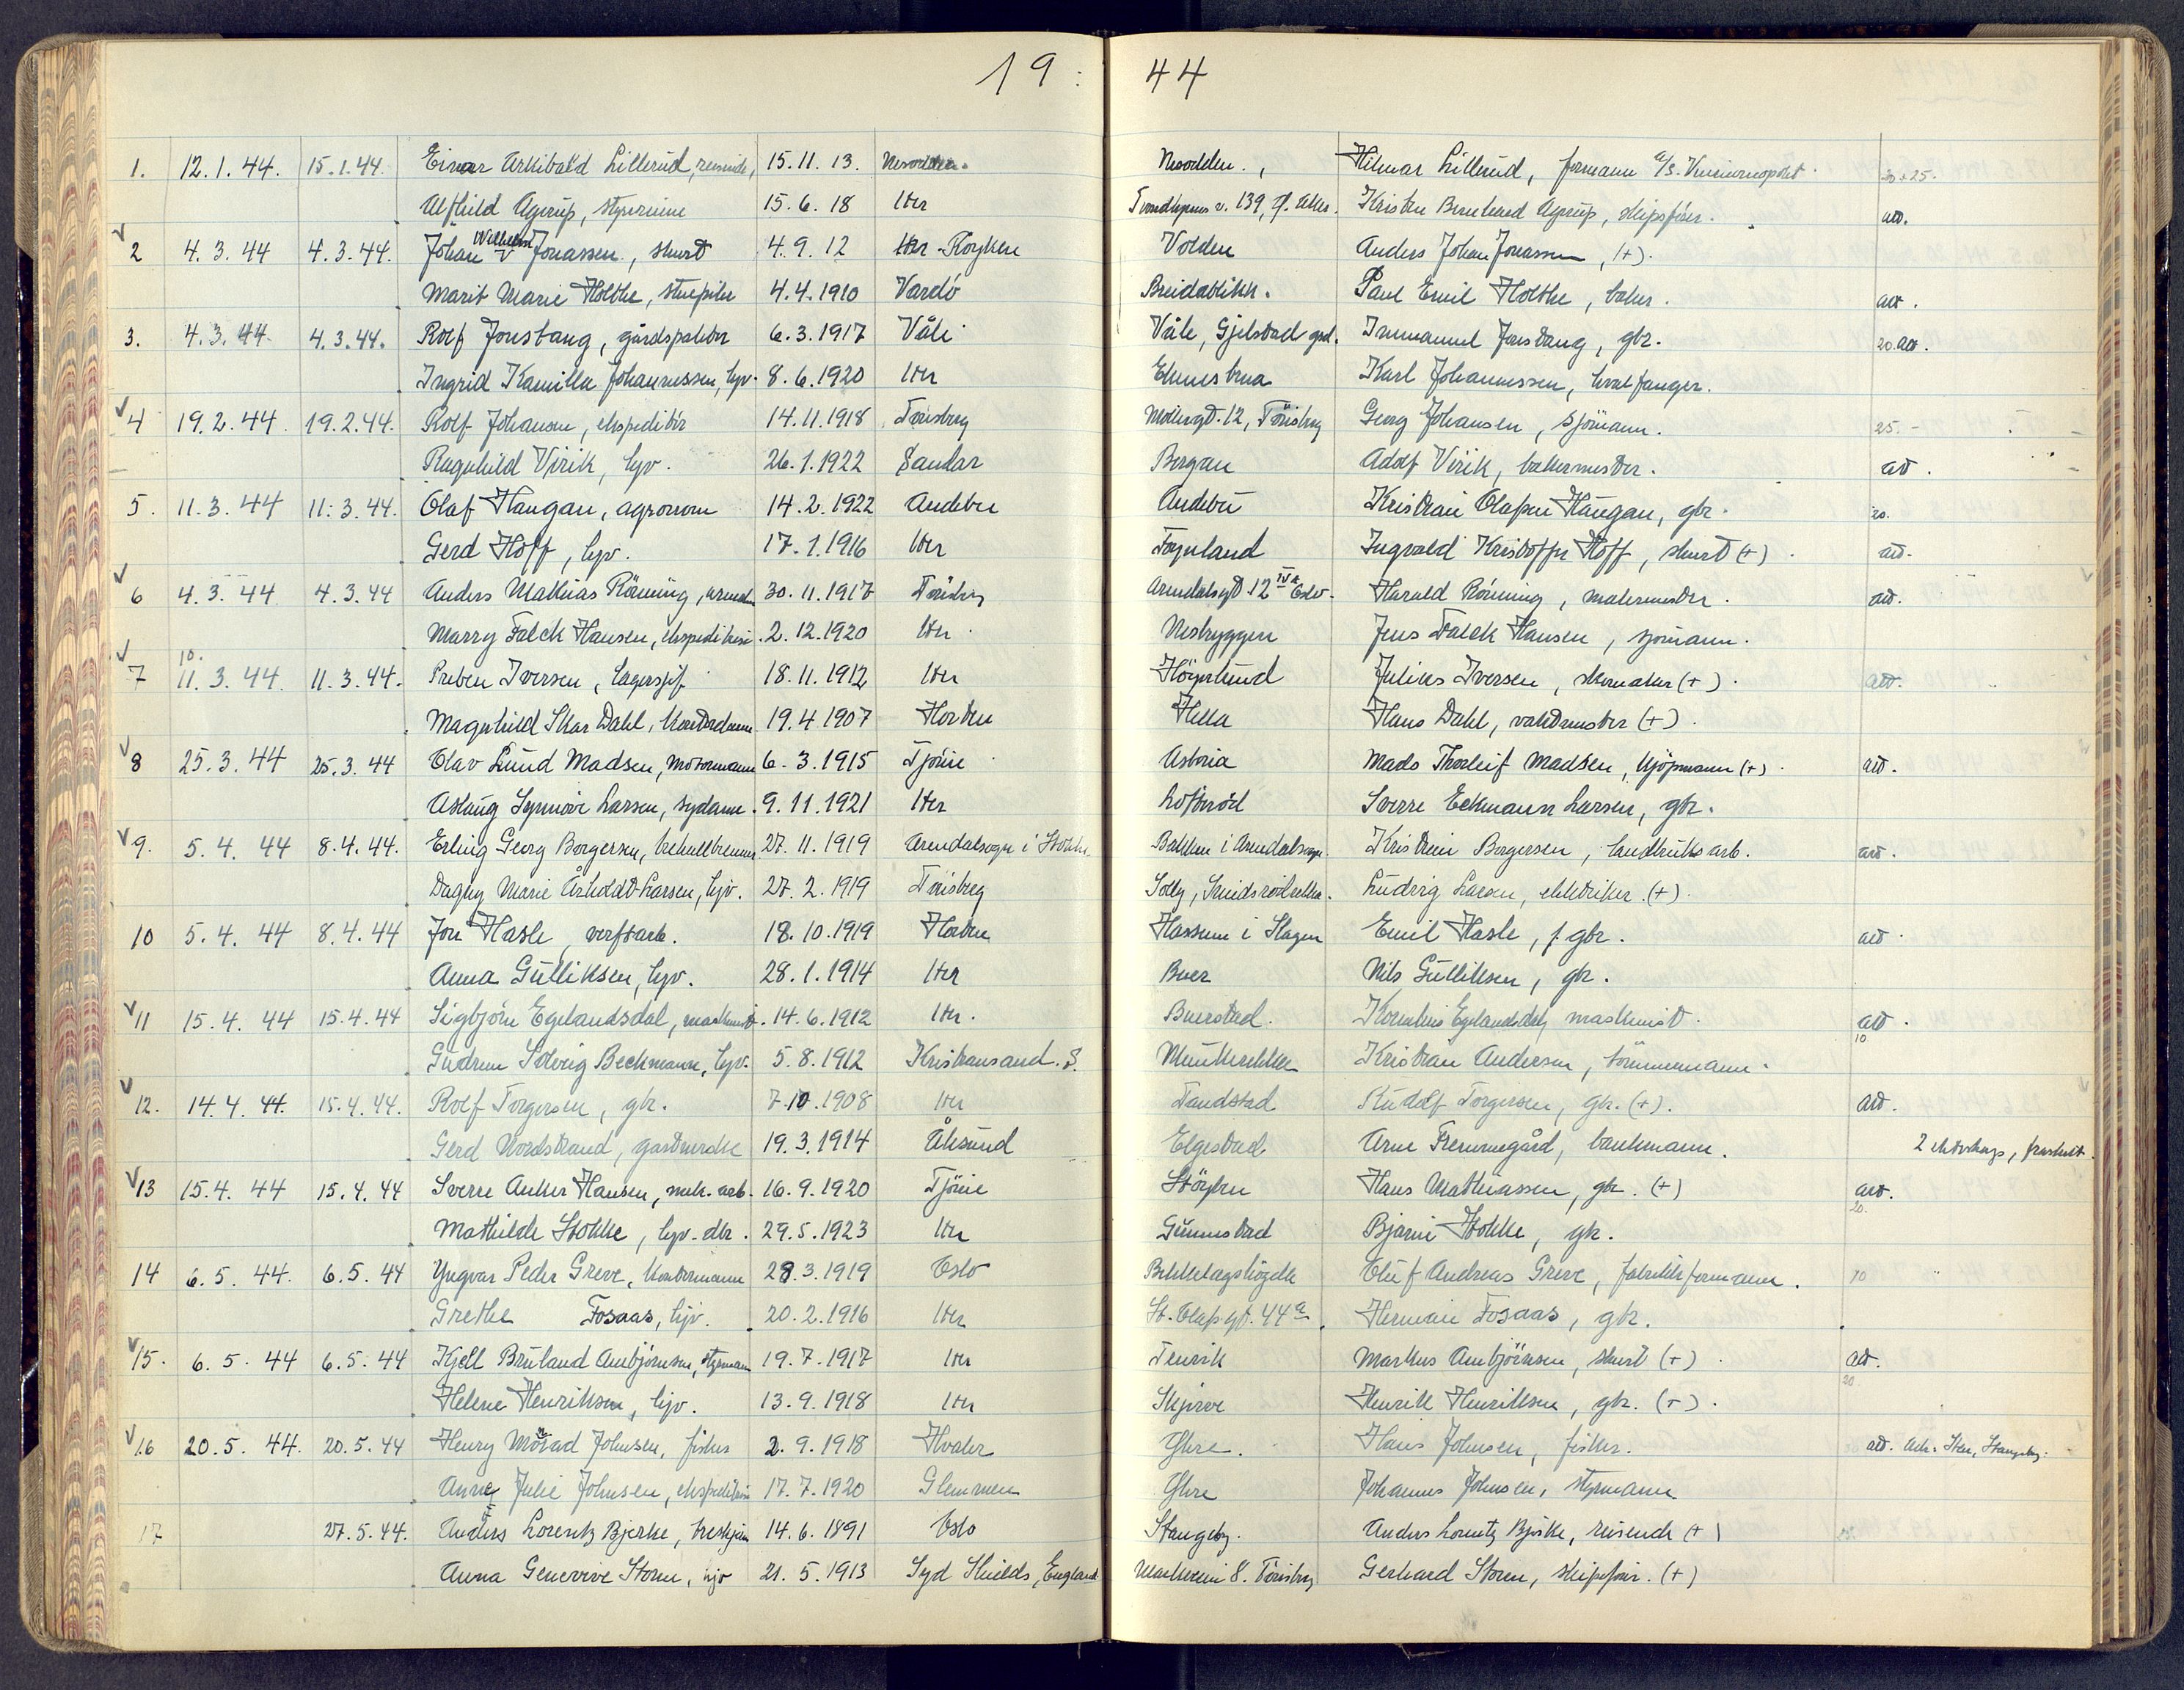 19:44
1. 12.1.44. 15.1.44 Einar Arkibald Lillerud, reisende, 15.11.13. Nesodden. Nesodden., Hilmar Lillerud, formann a/s. 20+25.
Alfhild Agerup, 15.6.18 Her Trondhjems v. 139, Kristen Bernhard Agerup, skipsfører. att.
2 4.3.44 4.3.44. Johan Wilhelm Jonassen, stuert 4.9.12 Her - Røyken Volden Anders Johan Jonassen, (+).
Marit Marie Holthe, stuepike 4.4.1910 Vardö Breidablikk. Paul Emil Holthe, baker. att.
3. 4.3.44 4.3.44. Rolf Jonsbang, 6.3.1917 Våle Våle, Gjelstad Immanuel Jonsbang, gbr. 20. att.
Ingrid Kamilla Johannessen, hjv. 8.6.1920 Her Elmesbrua Karl Johannessen, hvalfanger.
4 19.2.44 19.2.44. Rolf Johansen, ekspeditör 14.11.1918 Tönsberg Møllergt. 12, Tönsberg Georg Johansen, sjömann. 25.-
Ragnhild Virik, hjv. 26.1.1922 Sandar Bergan Adolf Virik, bakermester. att.
5. 11.3.44 11.3.44. Olaf Haugan, agronom 14.2.1922 Andebu Andebu Kristian Olafsen Haugan, gbr. 20.
Gerd Hoff, hjv. 17.1.1916 Her Føynland Ingvald Kristoffer Hoff, stuert (+). att.
6 4.3.44 4.3.44 Anders Mathias Rönning, 30.11.1917 Tönsberg Arendalsgt 12 IV Oslo. Harald Rönning, malermester. att.
Marry Falck Hansen, ekspeditrise. 2.12.1920 Her. Nesbryggen Jens Falck Hansen, sjömann.
10.
7 11.3.44. 11.3.44. Preben Iversen, lagersjef 18.11.1912 Her Högerlund Julius Iversen, skomaker (+). att.
Magnhild Skar Dahl, kontordame 19.4.1907 Horten Hella Hans Dahl, vaktmester (+).
8 25.3.44 25.3.44 Olav Lund Madsen, motormann 6.3.1915 Tjöme Astoria Mads Thorleif Madsen, kjöpmann (+). att.
Aslaug Synnöve Larsen, sydame. 9.11.1921 Her Sverre Eckmann Larsen, gbr.
9. 5.4.44 8.4.44. Erling Georg Borgersen, trekullbrenner 27.11.1919 Arendalsogn i Stokke Bakken i Arendalsogn. Kristian Borgersen, landbruksarb. att.
Dagny Marie Årholdt-Larsen, hjv. 27.2.1919 Tönsberg Solby, Ludvig Larsen, elektriker. (+).
10 5.4.44 8.4.44 Jon Hasle, verftsarb. 18.10.1919 Horten Hassum i Slagen Emil Hasle, f. gbr. att.
Anna Gulliksen, hjv. 28.1.1914 Her Buer Nils Gulliksen, gbr.
11 15.4.44 15.4.44 Sigbjörn Egelandsdal, maskinist. 14.6.1912 Her. Buerstad. Kornelius Egelandsdal, maskinist. att. 10
Gudrun Solveig Beckmann, hjv. 5.8.1912 Kristiansand. S. Munkerekka Kristian Andersen, tömmermann.
12. 14.4.44. 15.4.44. Rolf Torgersen, gbr. 7.10.1908 Her Tandstad Rudolf Torgersen, gbr. (+). att.
Gerd Nordstrand, 19.3.1914 Ålesund Elgestad Arne Fremmegård, bankmann. 2
13 15.4.44 15.4.44 Sverre Anker Hansen, mek. arb. 16.9.1920 Tjöme Hans Mathiassen, gbr. (+) att. 20.
Mathilde Stokke, hjv. dtr. 29.5.1923 Her Gunnestad Bjarne Stokke, gbr.
14 6.5.44. 6.5.44 Yngvar Peder Greve, kontormann 28.3.1919 Oslo Bekkelagshögda Oluf Andreas Greve, fabrikkformann. 10
Grethe Fosaas, hjv. 20.2.1916 Her St. Olafsgt. 44a. Herman Fosaas, gbr.
15. 6.5.44 6.5.44 Kjell Bruland Anbjörnsen, styrmann 19.7.1917 Her Tenvik Markus Anbjörnsen, stuert (+). att. 20
Helene Henriksen, hjv. 13.9.1918 Her Skjerve Henrik Henriksen, gbr. (+).
16 20.5.44. 20.5.44 Henry Johnsen, fisker 2.9.1918 Hvaler Glire. Hans Johnsen, fisker. att.
Anne Julie Johnsen, 17.7.1920 Glemmen Glire Johannes Johnsen, styrmann.
17 27.5.44. Anders Lorentz Bjerke, 14.6.1891 Oslo Stangeby. Anders Lorentz Bjerke, reisende (+)
Anna Genevive Storm, hjv 21.5.1913 Syd Shields, England 8. Tönsberg Gerhard Storm, skipsförer. (+)